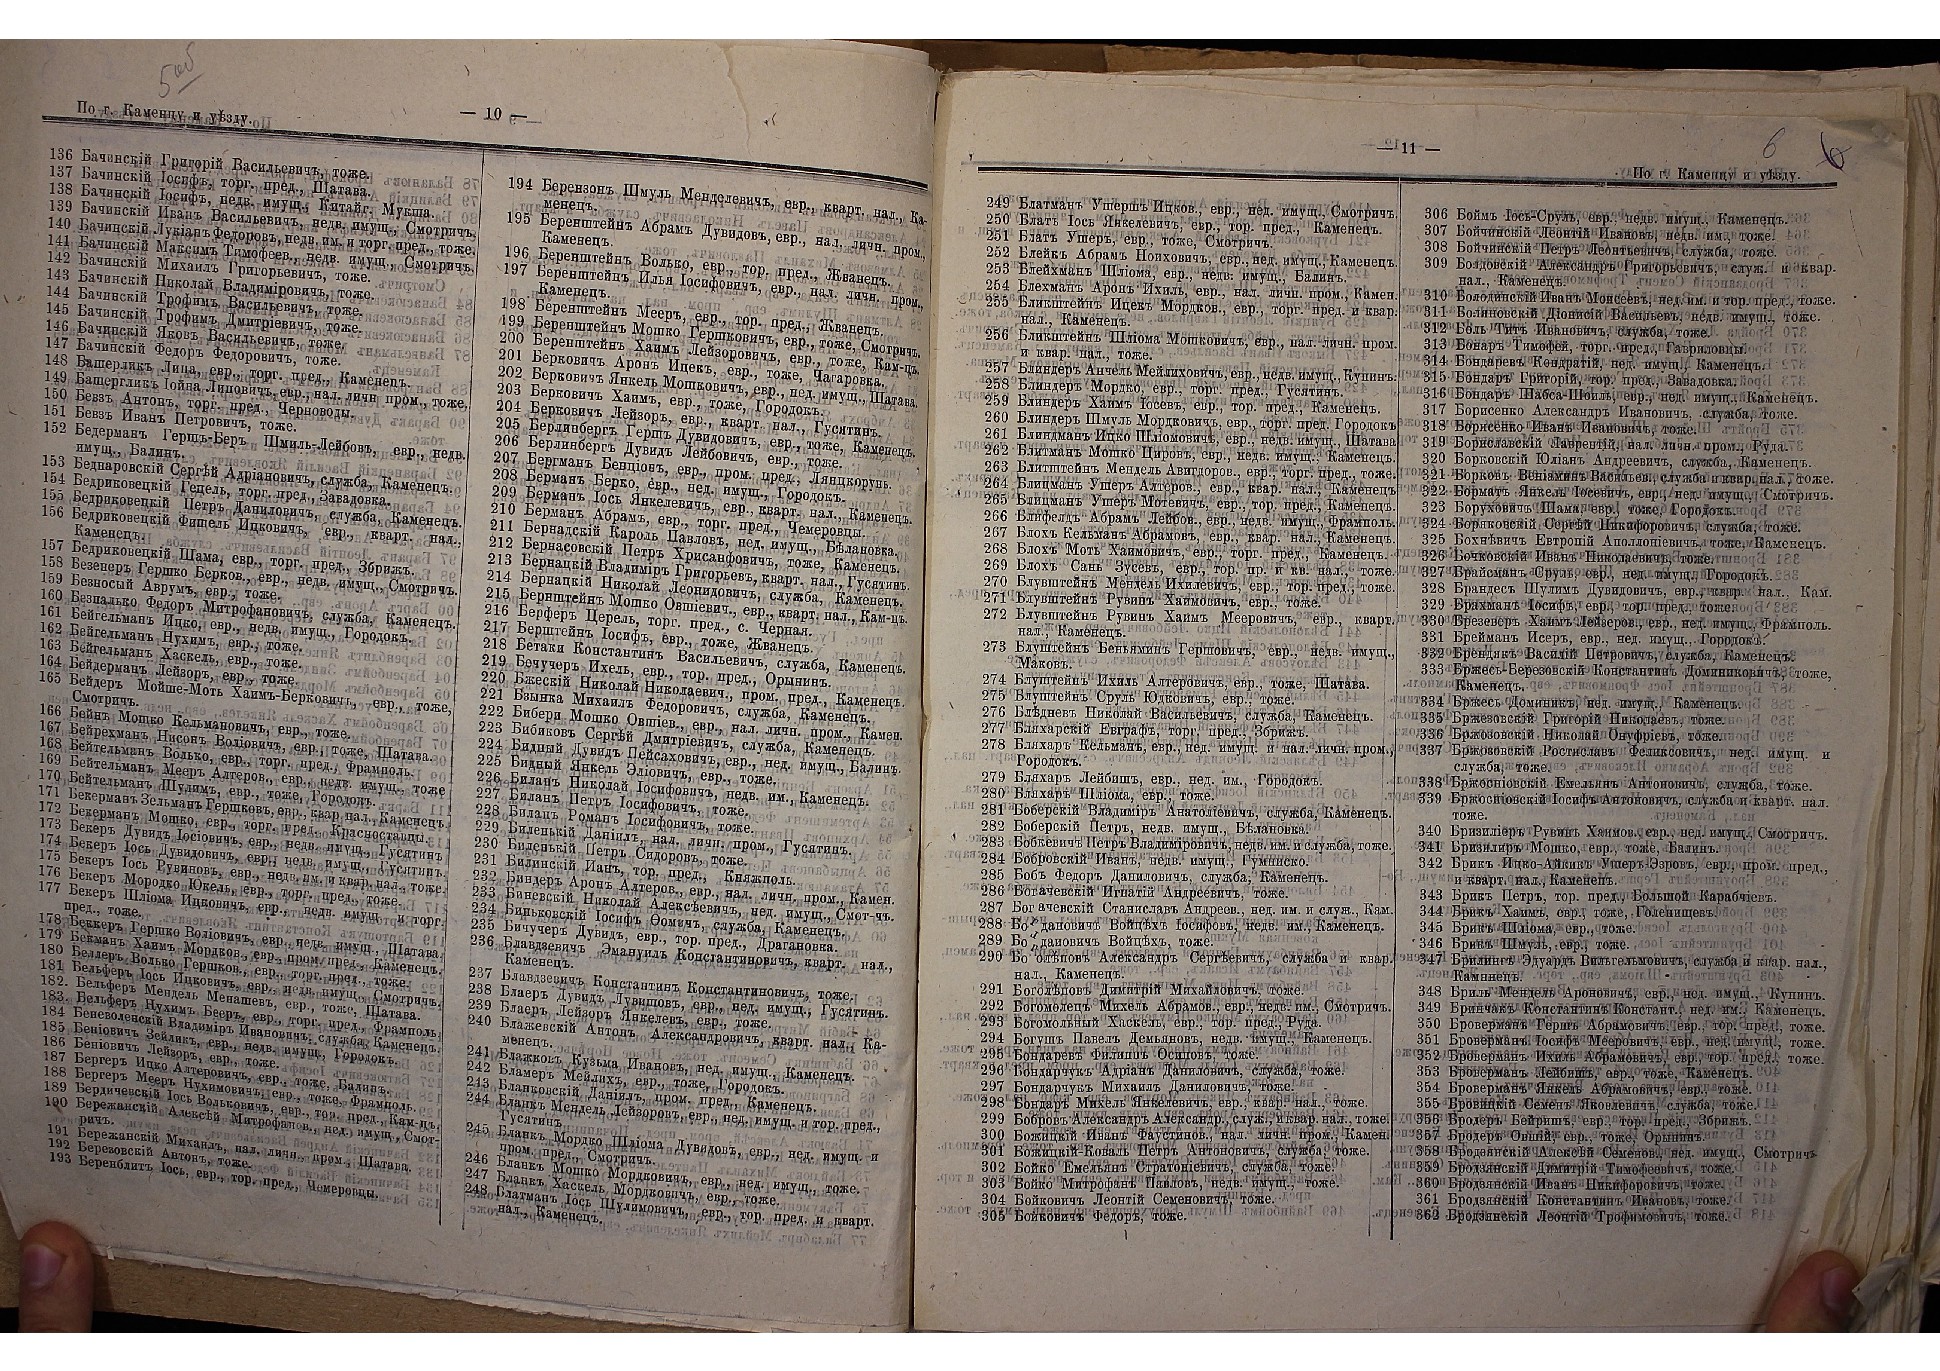 5 об
По г. Каменцу и уѣзду.
— 10 —
136 Бачинскій Григорій Васильевичъ, тоже.
137 Бачинскій Іосифъ, торг. пред., Шатава.
138 Бачинскій Іосифъ, недв. имущ., Китайг. Мукша.
139 Бачинскій Иванъ Васильевичъ, недв. имущ., Смотричъ.
140 Бачинскій Лукіанъ Федоровъ, недв. им. и торг. пред., тоже.
141 Бачинскій Максимъ Тимофеев., недв. имущ., Смотричъ.
142 Бачинскій Михаилъ Григорьевичъ, тоже.
143 Бачинскій Николай Владиміровичъ, тоже.
144 Бачинскій Трофимъ Васильевичъ, тоже.
145 Бачинскій Трофимъ Дмитріевичъ, тоже.
146 Бачинскій Яковъ Васильевичъ, тоже.
147 Бачинскій Федоръ Федоровичъ, тоже.
148 Башерликъ Липа, евр., торг. пред., Каменецъ.
149 Башергликъ Іойна Липовичъ, евр., нал. личн. пром., тоже.
150 Бевзъ Антонъ, торг. пред., Черноводы.
151 Бевзъ Иванъ Петровичъ, тоже.
152 Бедерманъ Герщъ-Беръ Шмиль-Лейбовъ, евр., недв.
имущ., Балинъ.
153 Беднаровскій Сергѣй Адріановичъ, служба, Каменецъ.
154 Бедриковецкій Гецель, торг. пред., Завадовка.
155 Бедриковецкій Петръ Даниловичъ, служба, Каменецъ.
156 Бедриковецкій Фишель Ицковичъ, евр., кварт. нал.,
Каменецъ.
157 Бедриковецкій Шама, евр., торг. пред., Збрижъ.
158 Безенеръ Гершко Берков., евр., недв. имущ., Смотричъ.
159 Безносый Аврумъ, евр., тоже.
160 Безпалько Федоръ Митрофановичъ, служба, Каменецъ.
161 Бейгельманъ Ицко, евр., недв. имущ., Городокъ.
162 Бейгельманъ Нухимъ, евр., тоже.
163 Бейгельманъ Хаскель, евр., тоже.
164 Бейдерманъ Лейзоръ, евр., тоже.
165 Бейдеръ Мойше-Моть Хаимъ-Берковичъ, евр., тоже,
Смотричъ.
166 Бейнъ Мошко Кельмановичъ, евр., тоже.
167 Бейрехманъ Нисонъ Воліовичъ, евр., тоже, Шатава.
168 Бейтельманъ Волько, евр., торг. пред., Фрамполь.
169 Бейтельманъ Мееръ Алтеров., евр., недв. имущ., тоже
170 Бейтельманъ Шулимъ, евр., тоже, Городокъ.
171 Бекерманъ Зельманъ Гершковъ, евр., квар. нал., Каменецъ.
172 Бекерманъ Мошко, евр., торг. пред., Красноставцы.
173 Бекеръ Дувидъ Іосіовичъ, евр., недв. имущ., Гусятинъ
174 Бекеръ Іось Дувидовичъ, евр., недв. имущ., Гусятинъ.
175 Бекеръ Іось Рувиновъ, евр., недв. им. и квар. нал., тоже.
176 Бекеръ Мородко Юкель, евр., торг. пред., тоже.
177 Бекеръ Шліома Ицковичъ, евр., недв. имущ. и торг.
пред., тоже.
178 Беккеръ Гершко Воліовичъ, евр., недв. имущ., Шатава.
179 Бекманъ Хаимъ Мордков., евр., пром. пред., Каменецъ.
180 Беллеръ Волько Гершков., евр., торг. пред., тоже.
181 Бельферъ Іось Ицковичъ, евр., недв. имущ., Смотричъ.
182. Бельферъ Мендель Менашевъ, евр., тоже, Шатава.
183. Бельферъ Нухимъ Бееръ, евр., торг. пред., Фрамполь.
184 Беневоленскій Владиміръ Ивановичъ, служба, Каменецъ.
185 Беніовичъ Зейликъ, евр., недв. имущ., Городокъ.
186 Беніовичъ Лейзоръ, евр., тоже.
187 Бергеръ Ицко Алтеровичъ, евр., тоже, Балинъ.
188 Бергеръ Мееръ Нухимовичъ, евр., тоже, Фрамполь.
189 Бердичевскій Іось Вольковичъ, евр., тор. пред., Кам-цъ.
190 Бережанскій Алексѣй Митрофанов., нед. имущ., Смот-
ричъ.
191 Бережанскій Михаилъ, нал. личн. пром., Шатава.
192 Березовскій Антонъ, тоже.
193 Беренблитъ Іось, евр., тор. пред., Чемеровцы.
194 Берензонъ Шмуль Менделевичъ, евр., кварт. нал., Ка-
менецъ.
195 Беренштейнъ Абрамъ Дувидовъ, евр., нал. личн. пром.,
Каменецъ.
196 Беренштейнъ Волько, евр., тор. пред., Жванецъ.
197 Беренштейнъ Илья Іосифовичъ, евр., нал. личн. пром.,
Каменецъ.
198 Беренштейнъ Мееръ, евр., тор. пред., Жванецъ.
199 Беренштейнъ Мошко Гершковичъ, евр., тоже, Смотричъ.
200 Беренштейнъ Хаимъ Лейзоровичъ, евр., тоже, Кам-цъ.
201 Берковичъ Аронъ Ицекъ, евр., тоже, Чагаровка.
202 Берковичъ Янкель Мошковичъ, евр., нед. имущ., Шатава.
203 Берковичъ Хаимъ, евр., тоже, Городокъ.
204 Берковичъ Лейзоръ, евр., кварт. нал., Гусятинъ.
205 Берлинбергъ Гершъ Дувидовичъ, евр., тоже, Каменецъ.
206 Берлинбергъ Дувидъ Лейбовичъ, евр., тоже.
207 Бергманъ Бенціонъ, евр., пром. пред., Лянцкорунь.
208 Берманъ Берко, евр., нед. имущ., Городокъ.
209 Берманъ Іось Янкелевичъ, евр., кварт. нал., Каменецъ.
210 Берманъ Абрамъ, евр., торг. пред., Чемеровцы.
211 Бернадскій Кароль Павловъ, нед. имущ., Бѣлановка.
212 Бернасовскій Петръ Хрисанфовичъ, тоже, Каменецъ.
213 Бернацкій Владиміръ Григорьевъ, кварт. нал., Гусятинъ.
214 Бернацкій Николай Леонидовичъ, служба, Каменецъ.
215 Бернштейнъ Мошко Овшіевич., евр., кварт. нал., Кам-цъ.
216 Берферъ Церель, торг. пред., с. Черная.
217 Берштейнъ Іосифъ, евр., тоже, Жванецъ.
218 Бетаки Константинъ Васильевичъ, служба, Каменецъ.
219 Бечучеръ Ихель, евр., тор. пред., Орынинъ.
220 Бжескій Николай Николаевич., пром. пред., Каменецъ.
221 Бзынка Михаилъ Федоровичъ, служба, Каменецъ.
222 Бибери Мошко Овшіев., евр., нал. личн. пром., Камен.
223 Бибиковъ Сергѣй Дмитріевичъ, служба, Каменецъ.
224 Бидный Дувидъ Пейсаховичъ, евр., нед. имущ., Балинъ.
225 Бидный Янкель Эліовичъ, евр., тоже.
226 Биланъ Николай Іосифовичъ, недв. им., Каменецъ.
227 Биланъ Петръ Іосифовичъ, тоже.
228 Биланъ Романъ Іосифовичъ, тоже.
229 Биленькій Даніилъ, нал. личн. пром., Гусятинъ.
230 Биленькій Петръ Сидоровъ, тоже.
231 Билинскій Ианъ, тор. пред., Княжполь.
232 Биндеръ Аронъ Алтеров., евр., нал. личн. пром., Камен.
233 Баневскій Николай Алексѣевичъ, нед. имущ., Смот-чъ.
234 Биньковскій Іосифъ Ѳомичъ, служба, Каменецъ.
235 Бичучеръ Дувидъ, евр., тор. пред., Драгановка.
236 Блавдаевичъ Эмануилъ Константиновичъ, кварт. нал.,
Каменецъ.
237 Блавдзевичъ Константинъ Константиновичъ, тоже.
238 Блаеръ Дувидъ Лувишовъ, евр., нед. имущ., Гусятинъ.
239 Блаеръ Лейзоръ Янкелевъ, евр., тоже.
240 Блажевскій Антонъ Александровичъ, кварт. нал., Ка-
менецъ.
241 Блажковъ Кузьма Ивановъ, нед. имущ., Каменецъ.
242 Бламеръ Мейлихъ, евр., тоже, Городокъ.
243 Бланковскій Даніилъ, пром. пред., Каменецъ.
244 Бланкъ Мендель Лейзоровъ, евр., нед. имущ. и тор. пред.,
Гусятинъ.
245 Бланкъ Мордко Шліома Дувидовъ, евр., нед. имущ. и
пром. пред., Смотричъ.
246 Бланкъ Мошко Мордковичъ, евр., нед. имущ., тоже.
247 Бланкъ Хаскель Мордковичъ, евр., тоже.
248 Блатманъ Іось Шулимовичъ, евр., тор. пред. и кварт.
нал., Каменецъ.
— 11 —
6
По г. Каменцу и уѣзду.
249 Блатманъ Ушеръ Ицков., евр., нед. имущ., Смотричъ.
250 Блатъ Іось Янкелевичъ, евр., тор. пред., Каменецъ.
251 Блатъ Ушеръ, евр., тоже, Смотричъ.
252 Блейкъ Абрамъ Ноиховичъ, евр., нед. имущ., Каменецъ.
253 Блейхманъ Шліома, евр., недв. имущ., Балинъ.
254 Блехманъ Аронъ Ихиль, евр., нал. личн. пром., Камен.
255 Бликштейнъ Ицекъ Мордков., евр., торг. пред. и квар.
нал., Каменецъ.
256 Бликштейнъ Шліома Мошковичъ, евр., нал. личн. пром.
и кварт. нал., тоже.
257 Блиндеръ Анчель Мейлиховичъ, евр., недв. имущ., Купинъ.
258 Блиндеръ Мордко, евр., торг. пред., Гусятинъ.
259 Блиндеръ Хаимъ Іосевъ, евр., тор. пред., Каменецъ.
260 Блиндеръ Шмуль Мордковичъ, евр., торг. пред. Городокъ
261 Блиндманъ Ицко Шліомовичъ, евр., недв. имущ., Шатава
262 Блитманъ Мошко Цировъ, евр., недв. имущ., Каменецъ.
263 Блитштейнъ Мендель Авигдоров., евр., торг. пред., тоже.
264 Блицманъ Ушеръ Алтеров., евр., квар. нал., Каменецъ
265 Блицманъ Ушеръ Мотевичъ, евр., тор. пред., Каменецъ.
266 Блифелдъ Абрамъ Лейбов., евр., недв. имущ., Фрамполь.
267 Блохъ Кельманъ Абрамовъ, евр., квар. нал., Каменецъ.
268 Блохъ Моть Хаимовичъ, евр., торг. пред., Каменецъ.
269 Блохъ Сань Зусевъ, евр., тор. пр. и кв. нал., тоже.
270 Блувштейнъ Мендель Ихилевичъ, евр., тор. пред., тоже.
271 Блувштейнъ Рувинъ Хаимовичъ, евр., тоже.
272 Блувштейнъ Рувинъ Хаимъ Мееровичъ, евр., кварт.
нал., Каменецъ.
273 Блуштейнъ Беньяминъ Гершовичъ, евр., недв. имущ.,
Маковъ.
274 Блуштейнъ Ихиль Алтеровичъ, евр., тоже, Шатава.
275 Блуштейнъ Сруль Юдковичъ, евр., тоже.
276 Блѣдневъ Николай Васильевичъ, служба, Каменецъ.
277 Бляхарскій Евграфъ, торг. пред., Збрижъ.
278 Бляхаръ Кельманъ, евр., нед. имущ. и нал. личн. пром.,
Городокъ.
279 Бляхаръ Лейбишъ, евр., нед. им., Городокъ.
280 Бляхаръ Шліома, евр., тоже.
281 Боберскій Владиміръ Анатоліевичъ, служба, Каменецъ.
282 Боберскій Петръ, недв. имущ., Бѣлановка.
283 Бобкевичъ Петръ Владиміровичъ, недв. им. и служба, тоже.
284 Бобровскій Иванъ, недв. имущ., Гуминско.
285 Бобъ Федоръ Даниловичъ, служба, Каменецъ.
286 Богачевскій Игнатій Андреевичъ, тоже.
287 Богачевскій Станиславъ Андреев., нед. им. и служ., Кам.
288 Богдановичъ Войцѣхъ Іосифовъ, недв. им., Каменецъ.
289 Богдановичъ Войцѣхъ, тоже.
290 Боголѣповъ Александръ Сергѣевичъ, служба и квар.
нал., Каменецъ.
291 Боголѣповъ Димитрій Михайловичъ, тоже.
292 Богомолецъ Михель Абрамов., евр., недв. им., Смотричъ.
293 Богомольный Хаскель, евр., тор. пред., Руда.
294 Богушъ Павелъ Демьяновъ, недв. имущ., Каменецъ.
295 Бондаревъ Филиппъ Осиповъ, тоже.
296 Бондарчукъ Адріанъ Даниловичъ, служба, тоже.
297 Бондарчукъ Михаилъ Даниловичъ, тоже.
298 Бондаръ Михель Янкелевичъ, евр., кварт. нал., тоже.
299 Бобровъ Александръ Александр., служ. и кварт. нал., тоже.
300 Божицкій Иванъ Фаустинов., нал. личн. пром., Камен.
301 Божицкій-Коваль Петръ Антоновичъ, служба, тоже.
302 Бойко Емельянъ Стратоніевичъ, служба, тоже.
303 Бойко Митрофанъ Павловъ, недв. имущ., тоже.
304 Бойковичъ Леонтій Семеновичъ, тоже.
305 Бойковичъ Федоръ, тоже.
306 Боймъ Іось-Сруль, евр., недв. имущ., Каменецъ.
307 Бойчинскій Леонтій Ивановъ, недв. им., тоже.
308 Бойчинскій Петръ Леонтьевичъ, служба, тоже.
309 Болдовскій Александръ Григорьевичъ, служ. и квар.
нал., Каменецъ.
310 Болодинскій Иванъ Моисеевъ, нед. им. и тор. пред., тоже.
311 Болиновскій Діонисій Васильевъ, недв. имущ., тоже.
312 Боль Титъ Ивановичъ, служба, тоже.
313 Бонаръ Тимофей, торг. пред., Гавриловцы.
314 Бондаревъ Кондратій, нед. имущ., Каменецъ.
315 Бондаръ Григорій, тор. пред., Завадовка.
316 Бондаръ Шабса-Шоиль, евр., нед. имущ., Каменецъ.
317 Борисенко Александръ Ивановичъ, служба, тоже.
318 Борисенко Иванъ Ивановичъ, тоже.
319 Бориславскій Лаврентій, нал. личн. пром., Руда.
320 Борковскій Юліанъ Андреевичъ, служба, Каменецъ.
321 Борковъ Веніаминъ Васильев., служба и квар. нал., тоже.
322 Борматъ Янкель Іосевичъ, евр., нед. имущ., Смотричъ.
323 Боруховичъ Шама, евр., тоже, Городокъ.
324 Боряковскій Сергѣй Никифоровичъ, служба, тоже.
325 Бохнѣвичъ Евтропій Аполлоніевичъ, тоже, Каменецъ.
326 Бочковскій Иванъ Николаевичъ, тоже.
327 Брайсманъ Сруль, евр., нед. имущ., Городокъ.
328 Брандесъ Шулимъ Дувидовичъ, евр., кварт. нал., Кам.
329 Брахманъ Іосифъ, евр., тор. пред., тоже.
330 Брезеверъ Хаимъ Лейзеров., евр., нед. имущ., Фрамполь.
331 Брейманъ Исеръ, евр., нед. имущ., Городокъ.
332 Брендикъ Василій Петровичъ, служба, Каменецъ.
333 Бржесь-Березовскій Константинъ Доминиковичъ, тоже,
Каменецъ.
334 Бржесь Доминикъ, нед. имущ., Каменецъ.
335 Бржезовскій Григорій Николаевъ, тоже.
336 Бржозовскій Николай Онуфріевъ, тоже.
337 Бржозовскій Ростиславъ Феликсовичъ, нед. имущ. и
служба, тоже.
338 Бржоспіовскій Емельянъ Антоновичъ, служба, тоже.
339 Бржоспіовскій Іосифъ Антоновичъ, служба и кварт. нал.
тоже.
340 Бризиліеръ Рувинъ Хаимов., евр., нед. имущ., Смотричъ.
341 Бризилиръ Мошко, евр., тоже, Балинъ.
342 Брикъ Ицко-Айзикъ Ушеръ-Эзровъ, евр., пром. пред.,
и кварт. нал., Каменецъ.
343 Брикъ Петръ, тор. пред., Большой Карабчіевъ.
344 Брикъ Хаимъ, евр., тоже, Голенищевъ.
345 Брикъ Шліома, евр., тоже.
346 Брикъ Шмуль, евр., тоже.
347 Брилингъ Эдуардъ Вильгельмовичъ, служба и квар. нал.,
Каменецъ.
348 Бриль Мендель Ароновичъ, евр., нед. имущ., Купинъ.
349 Бринчакъ Константинъ Констант., нед. им., Каменецъ.
350 Броверманъ Гершъ Абрамовичъ, евр., тор. пред., тоже.
351 Броверманъ Іосифъ Мееровичъ, евр., нед. имущ., тоже.
352 Броверманъ Ихиль Абрамовичъ, евр., тор. пред., тоже.
353 Броверманъ Лейбишъ, евр., тоже, Каменецъ.
354 Броверманъ Янкель Абрамовичъ, евр., тоже.
355 Бровицкій Семенъ Яковлевичъ, служба, тоже.
356 Бродеръ Бейришъ, евр., тор. пред., Збрижъ.
357 Бродеръ Овшій, евр., тоже, Орынинъ.
358 Бродзянскій Алексѣй Семенов., нед. имущ., Смотричъ
359 Бродзянскій Димитрій Тимофеевичъ, тоже.
360 Бродзянскій Иванъ Никифоровичъ, тоже.
361 Бродзянскій Константинъ Ивановъ, тоже.
362 Бродзянскій Леонтій Трофимовичъ, тоже.